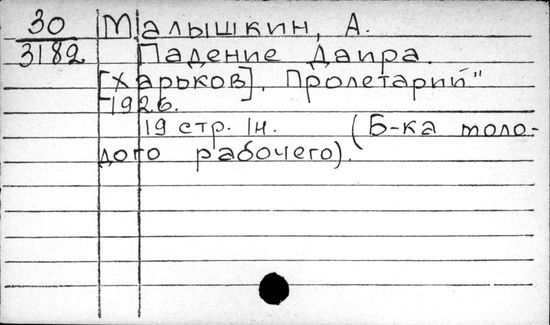 30 Малышкин, А.
3182 Падение Даира.
[Харьков], Пролетарий"
1926.
19 стр. 1н. (Б-ка моло-
дого рабочего).